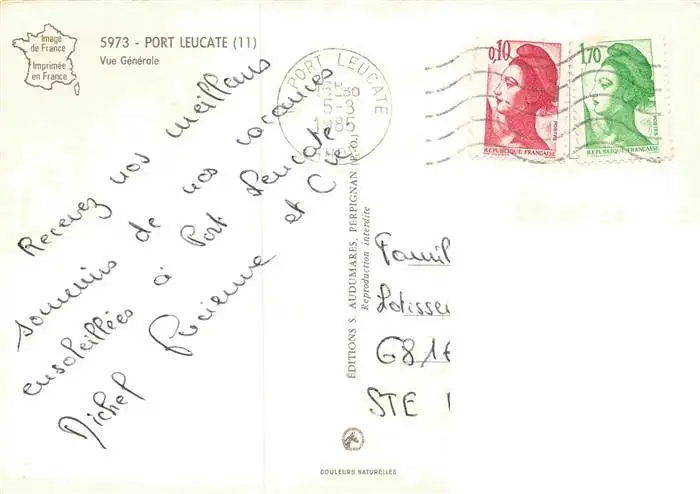 Image
de France
Imprimée
en France
5973 - PORT LEUCATE (11)
Vue Générale
PORT LEUCATE
5-8
1985
0,10
POSTES
REPUBLIQUE FRANÇAISE
1,70
POSTES
REPUBLIQUE FRANÇAISE
Recevez nos meillans
souvenirs de nos vacances
ensoleillées à Port Leucate
Michel Lucienne et Cie
ÉDITIONS S. AUDUMARES, PERPIGNAN (P.-O.)
Reproduction interdite
Famil
Lotissen
6816
STE
COULEURS NATURELLES